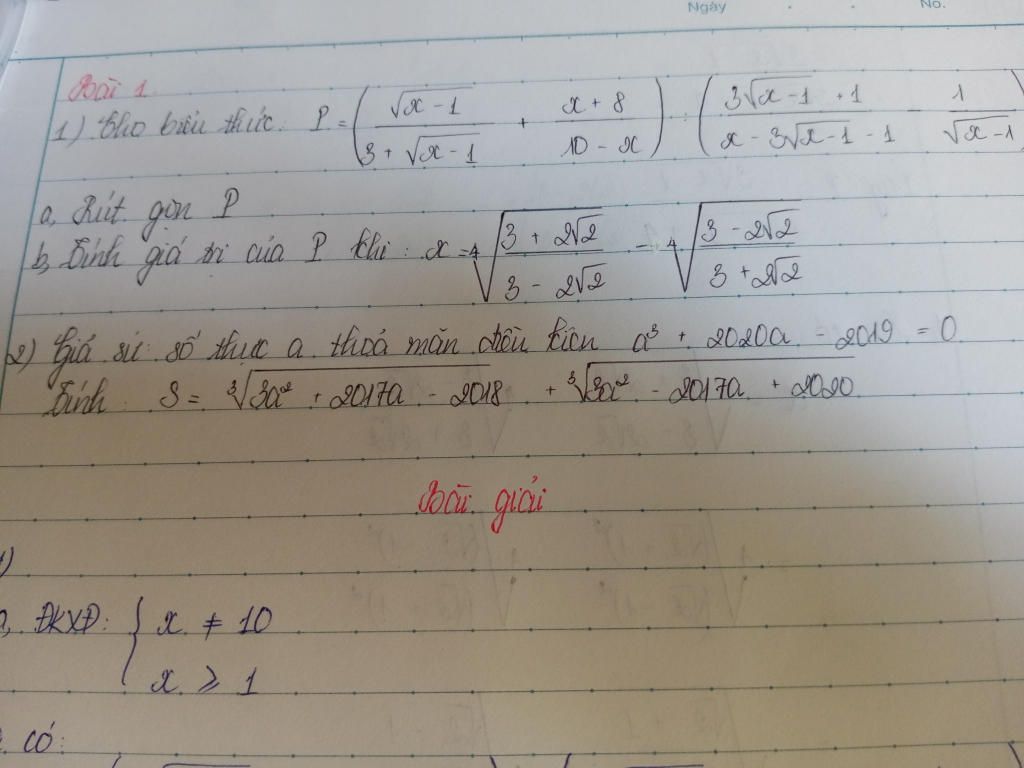 Ngày No.
Bài 1.
1) Cho biểu thức: P = (√(x - 1) / (3 + √(x - 1)) + (x + 8) / (10 - x)) : ((3√(x - 1) + 1) / (x - 3√(x - 1) - 1) - 1 / √(x - 1))
a, Rút gọn P
b, Tính giá trị của P khi: x = ⁴√((3 + 2√2) / (3 - 2√2)) - ⁴√((3 - 2√2) / (3 + 2√2))
2) Giả sử: số thực a thoả mãn điều kiện a³ + 2020a - 2019 = 0
Tính: S = ³√(3a² + 2017a - 2018) + ³√(3a² - 2017a + 2020)
Bài giải
1)
a, ĐKXĐ: { x ≠ 10
x ≥ 1
có: